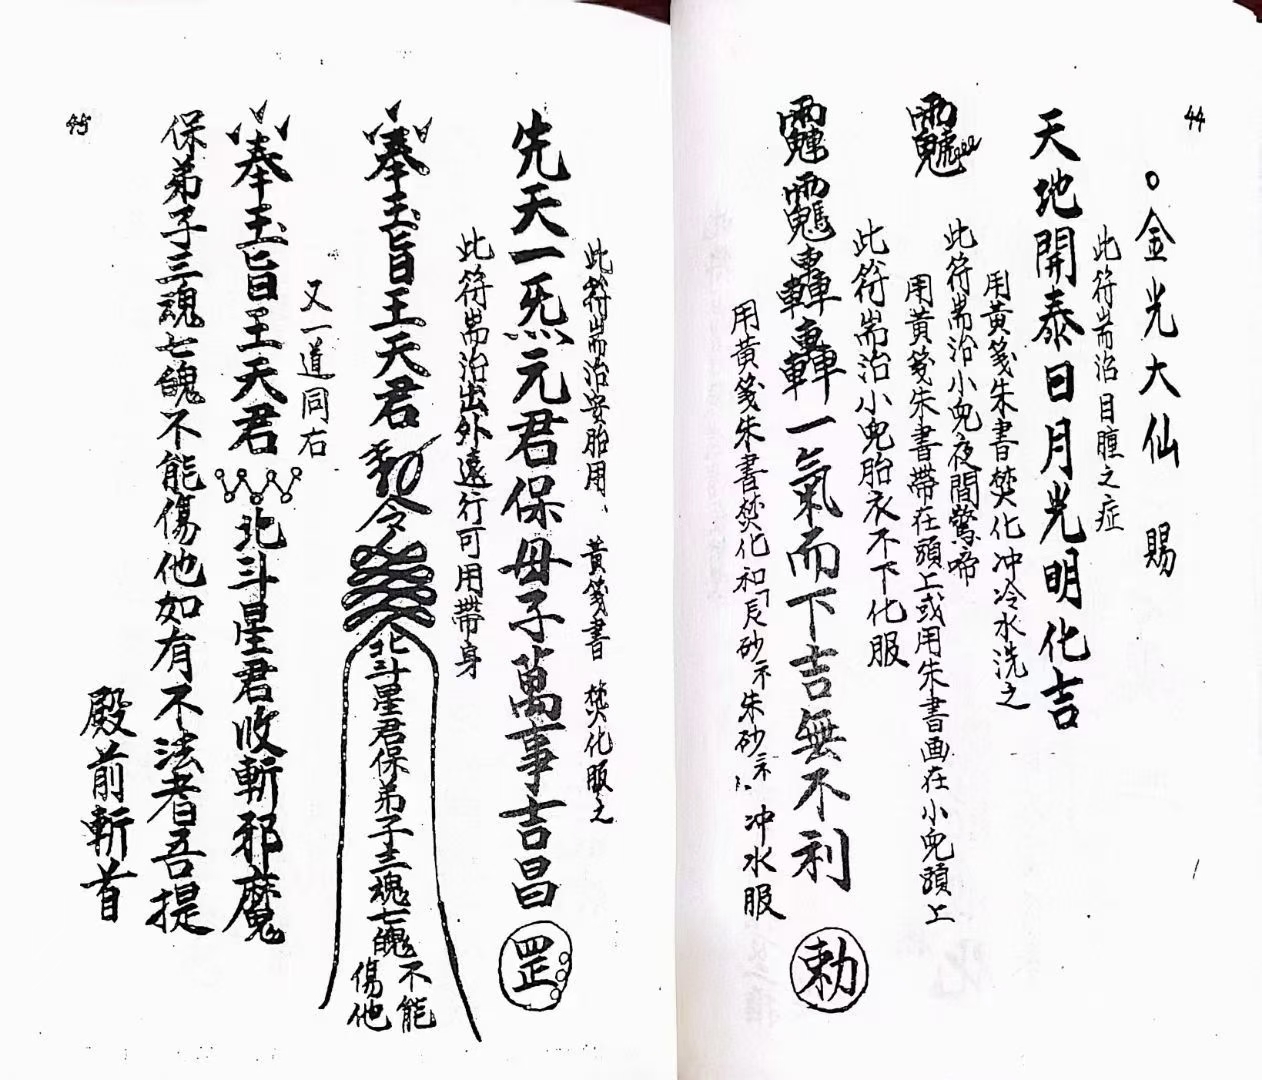 44
。金光大仙 賜
此符耑治目瞳之症
天地開泰日月光明化吉
用黃箋朱書焚化冲冷水洗之
此符耑治小兒夜間驚啼
用黃箋朱書帶在頭上或用朱書画在小兒頭上
此符耑治小兒胎衣不下化服
轟轟一氣而下吉無不利 勅
用黃箋朱書焚化和 砂 朱砂 冲水服
此符耑治安胎用、黃箋書 焚化服之
先天一炁元君保母子萬事吉昌 罡
此符耑治出外遠行可用帶身
奉玉旨王天君勅令北斗星君保弟子三魂七魄不能傷他
又一道同右
奉玉旨王天君北斗星君收斬邪魔
保弟子三魂七魄不能傷他如有不法者吾提
殿前斬首
45